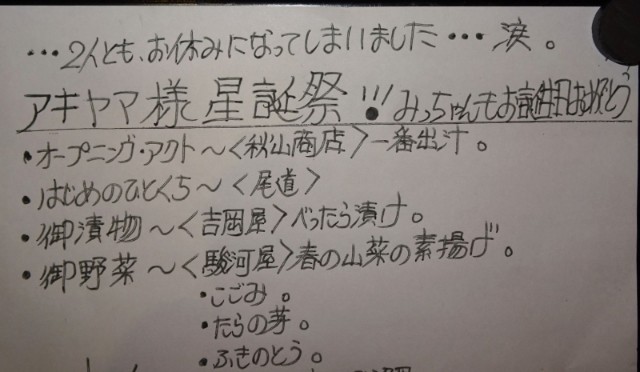 …2人とも、お休みになってしまいました…涙。
アキヤマ様星誕祭!!!みっちゃんもお誕生日おめでとう
・オープニング・アクト～〈秋山商店〉一番出汁。
・はじめのひとくち～〈尾道〉
・御漬物～〈吉岡屋〉べったら漬け。
・御野菜～〈駿河屋〉春の山菜の素揚げ。
・こごみ。
・たらの芽。
・ふきのとう。